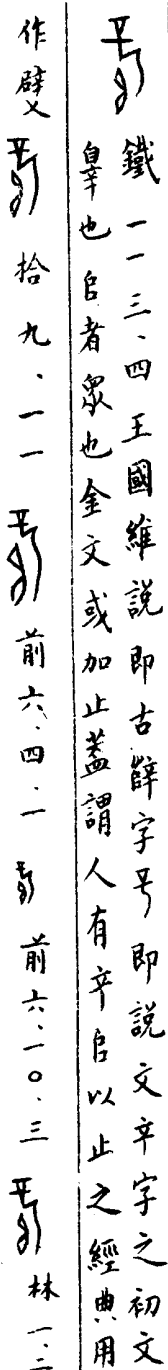 鐵一一三、四王國維説即古薛字䇂即説文䇂字之初文
辠也𠂤者衆也金文或加止蓋謂人有䇂𠂤以止之經典用
作㣇 拾九、一一 前六、四、一 前六、一〇、三 林一、二